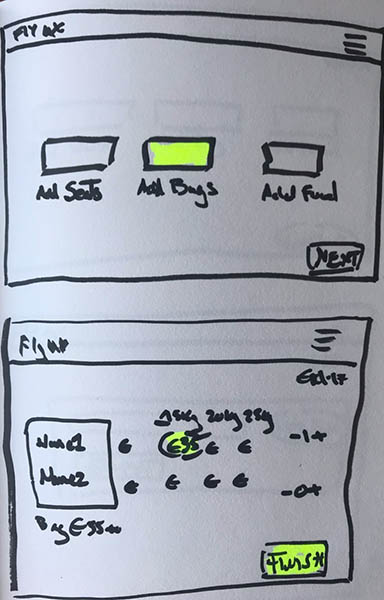 FLY UX
Add Seats Add Bags Add Food
NEXT
Fly UX
15kg 20kg 25kg
Name1 € €35 € € -1+
Name2 € € € € -0+
Bag €35.00
FINISH